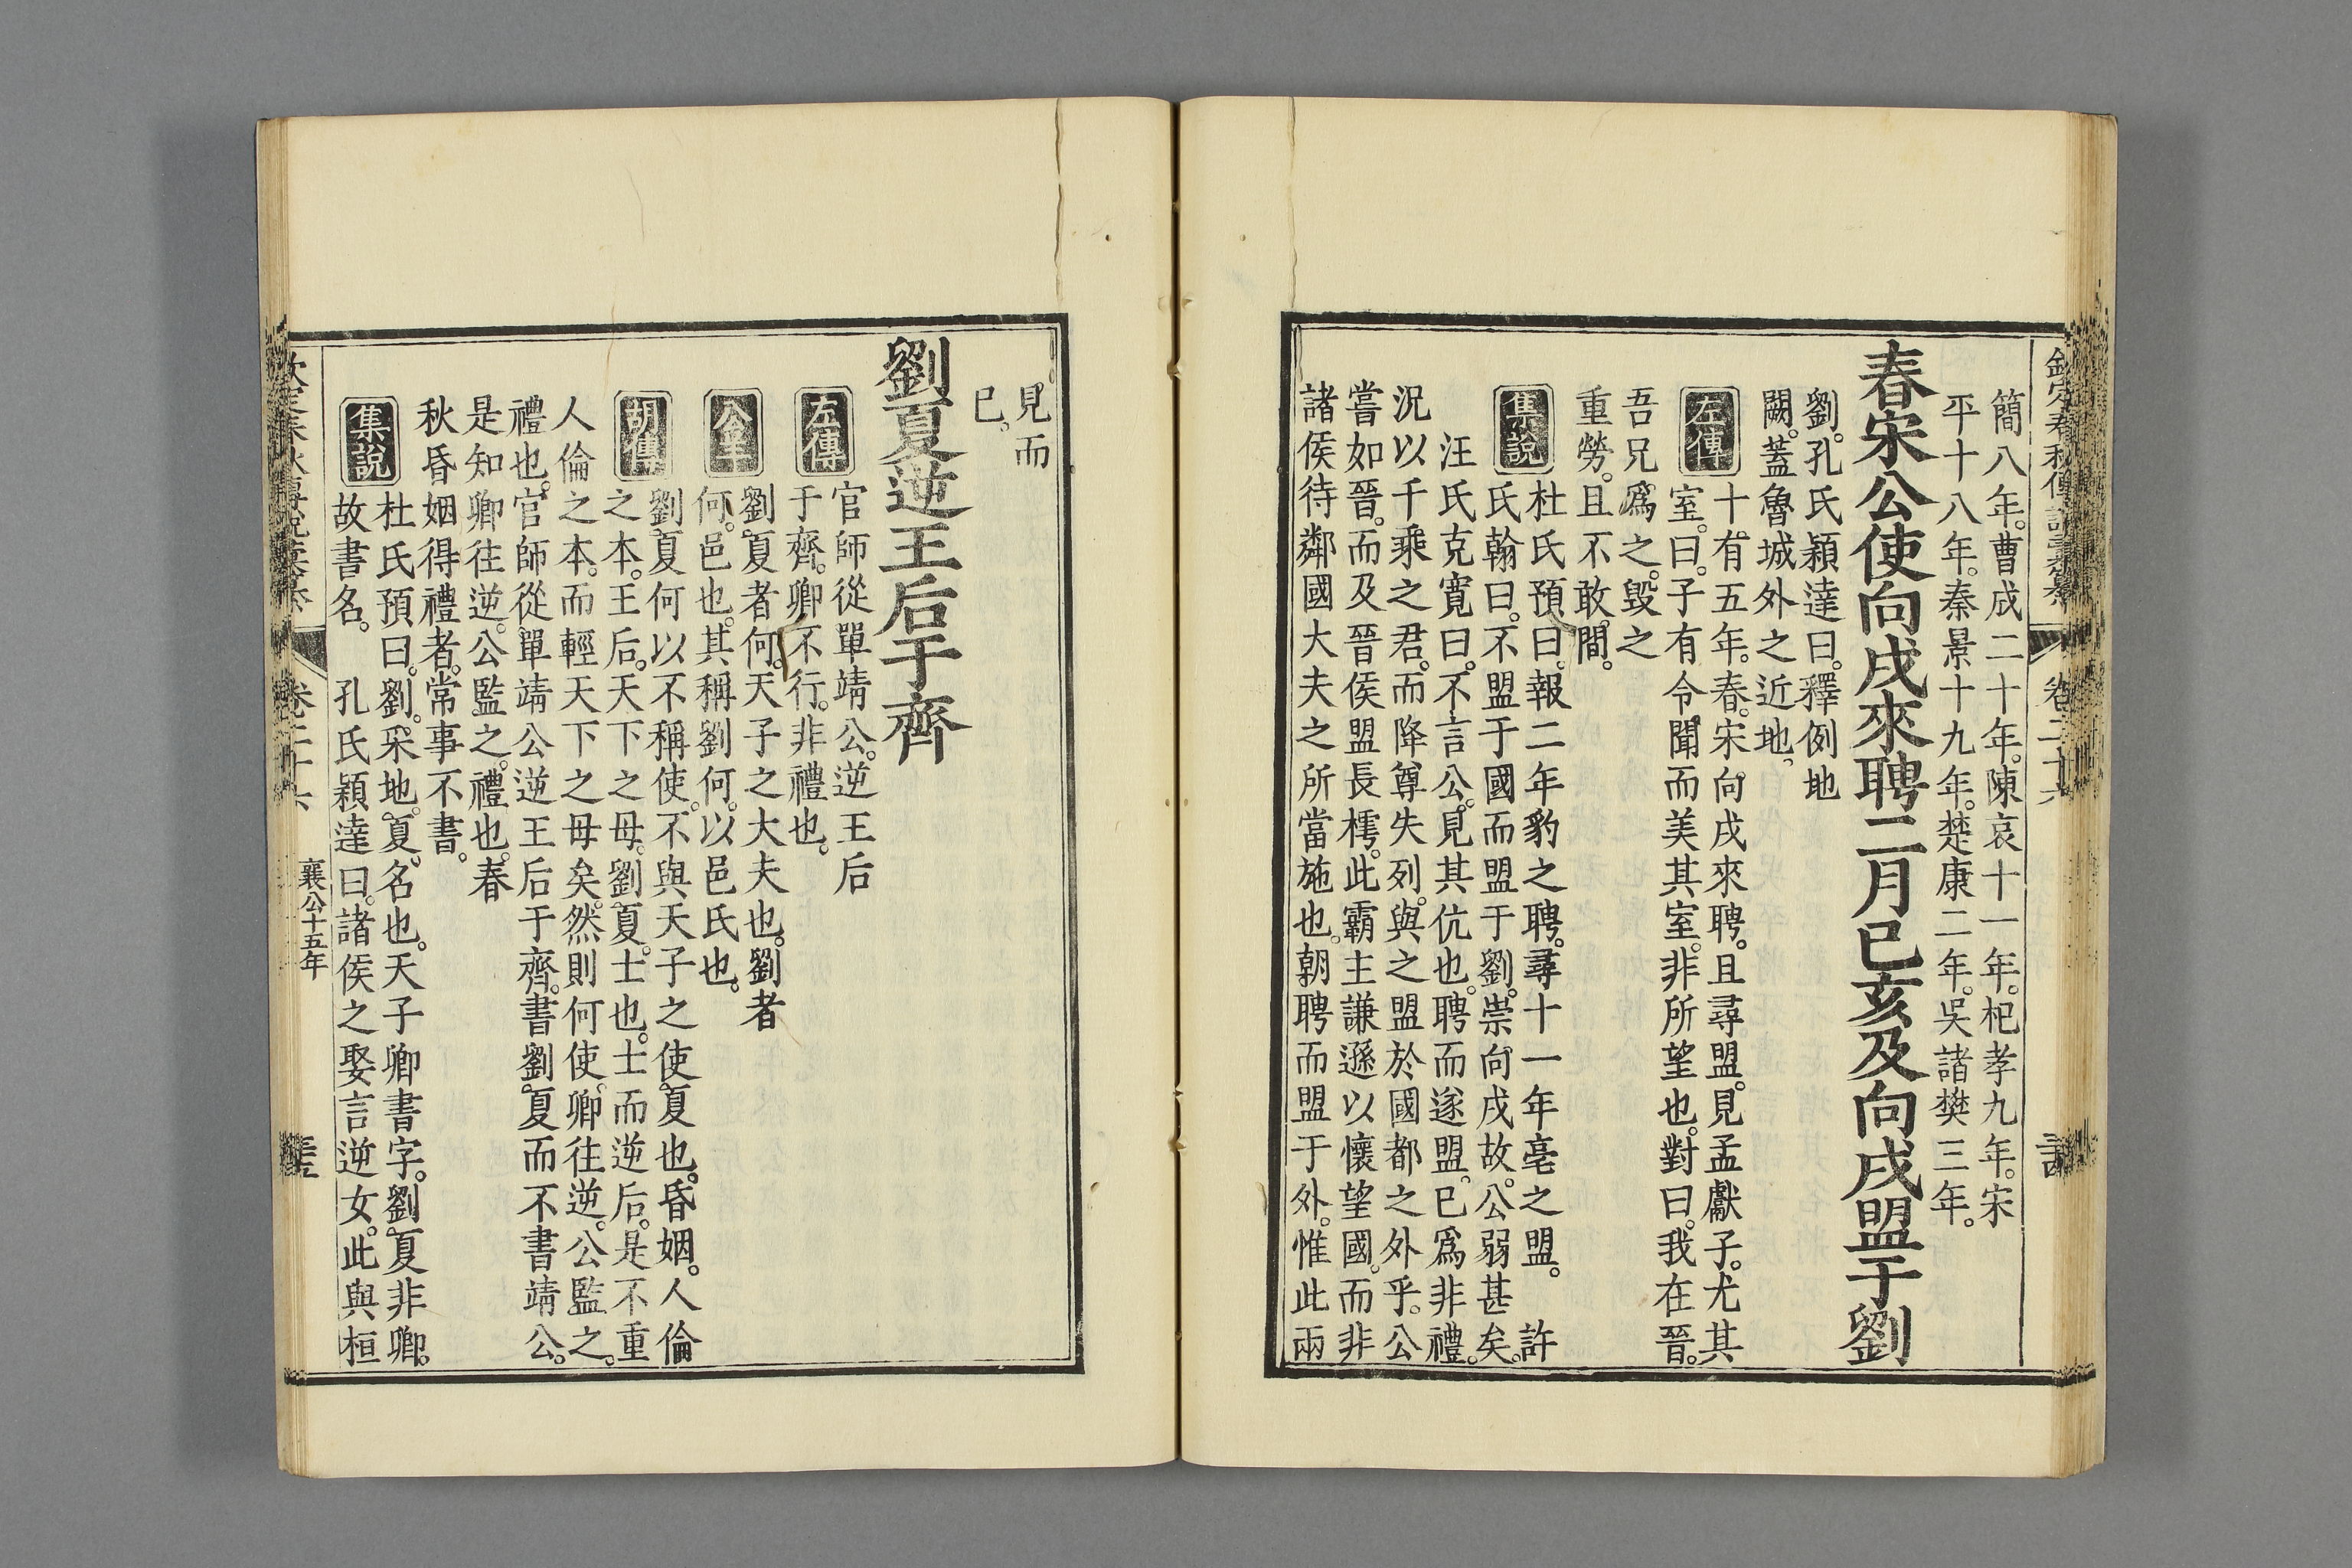 簡八年。曹成二十年。陳哀十一年。杞孝九年。宋
平十八年。秦景十九年。楚康二年。吳諸樊三年。
春宋公使向戌來聘二月已亥及向戌盟于劉
劉。孔氏穎達曰。釋例地
闕。蓋魯城外之近地。
左傳
十有五年。春。宋向戌來聘。且尋盟。見孟獻子。尤其
室。曰。子有令聞。而美其室。非所望也。對曰。我在晉。
吾兄爲之。毀之
重勞。且不敢間。
集說
杜氏預曰。報二年豹之聘。尋十一年亳之盟。　許
氏翰曰。不盟于國而盟于劉。崇向戌故。公弱甚矣。
汪氏克寬曰。不言公。見其伉也。聘而遂盟。已爲非禮。
況以千乘之君。而降尊失列。與之盟於國都之外乎。公
嘗如晉。而及晉侯盟長樗。此霸主謙遜以懷望國。而非
諸侯待鄰國大夫之所當施也。朝聘而盟于外。惟此兩
見而
已。
劉夏逆王后于齊
左傳
官師從單靖公。逆王后
于齊。卿不行。非禮也。
公羊
劉夏者何。天子之大夫也。劉者
何。邑也。其稱劉何。以邑氏也。
胡傳
劉夏何以不稱使。不與天子之使夏也。昏姻。人倫
之本。王后。天下之母。劉夏。士也。士而逆后。是不重
人倫之本。而輕天下之母矣。然則何使。卿往逆。公監之。
禮也。官師從單靖公逆王后于齊。書劉夏而不書靖公。
是知卿往逆。公監之。禮也。春
秋昏姻得禮者。常事不書。
集說
杜氏預曰。劉。采地。夏。名也。天子卿書字。劉夏非卿。
故書名。　孔氏穎達曰。諸侯之娶言逆女。此與桓
卷二十六
襄公十五年